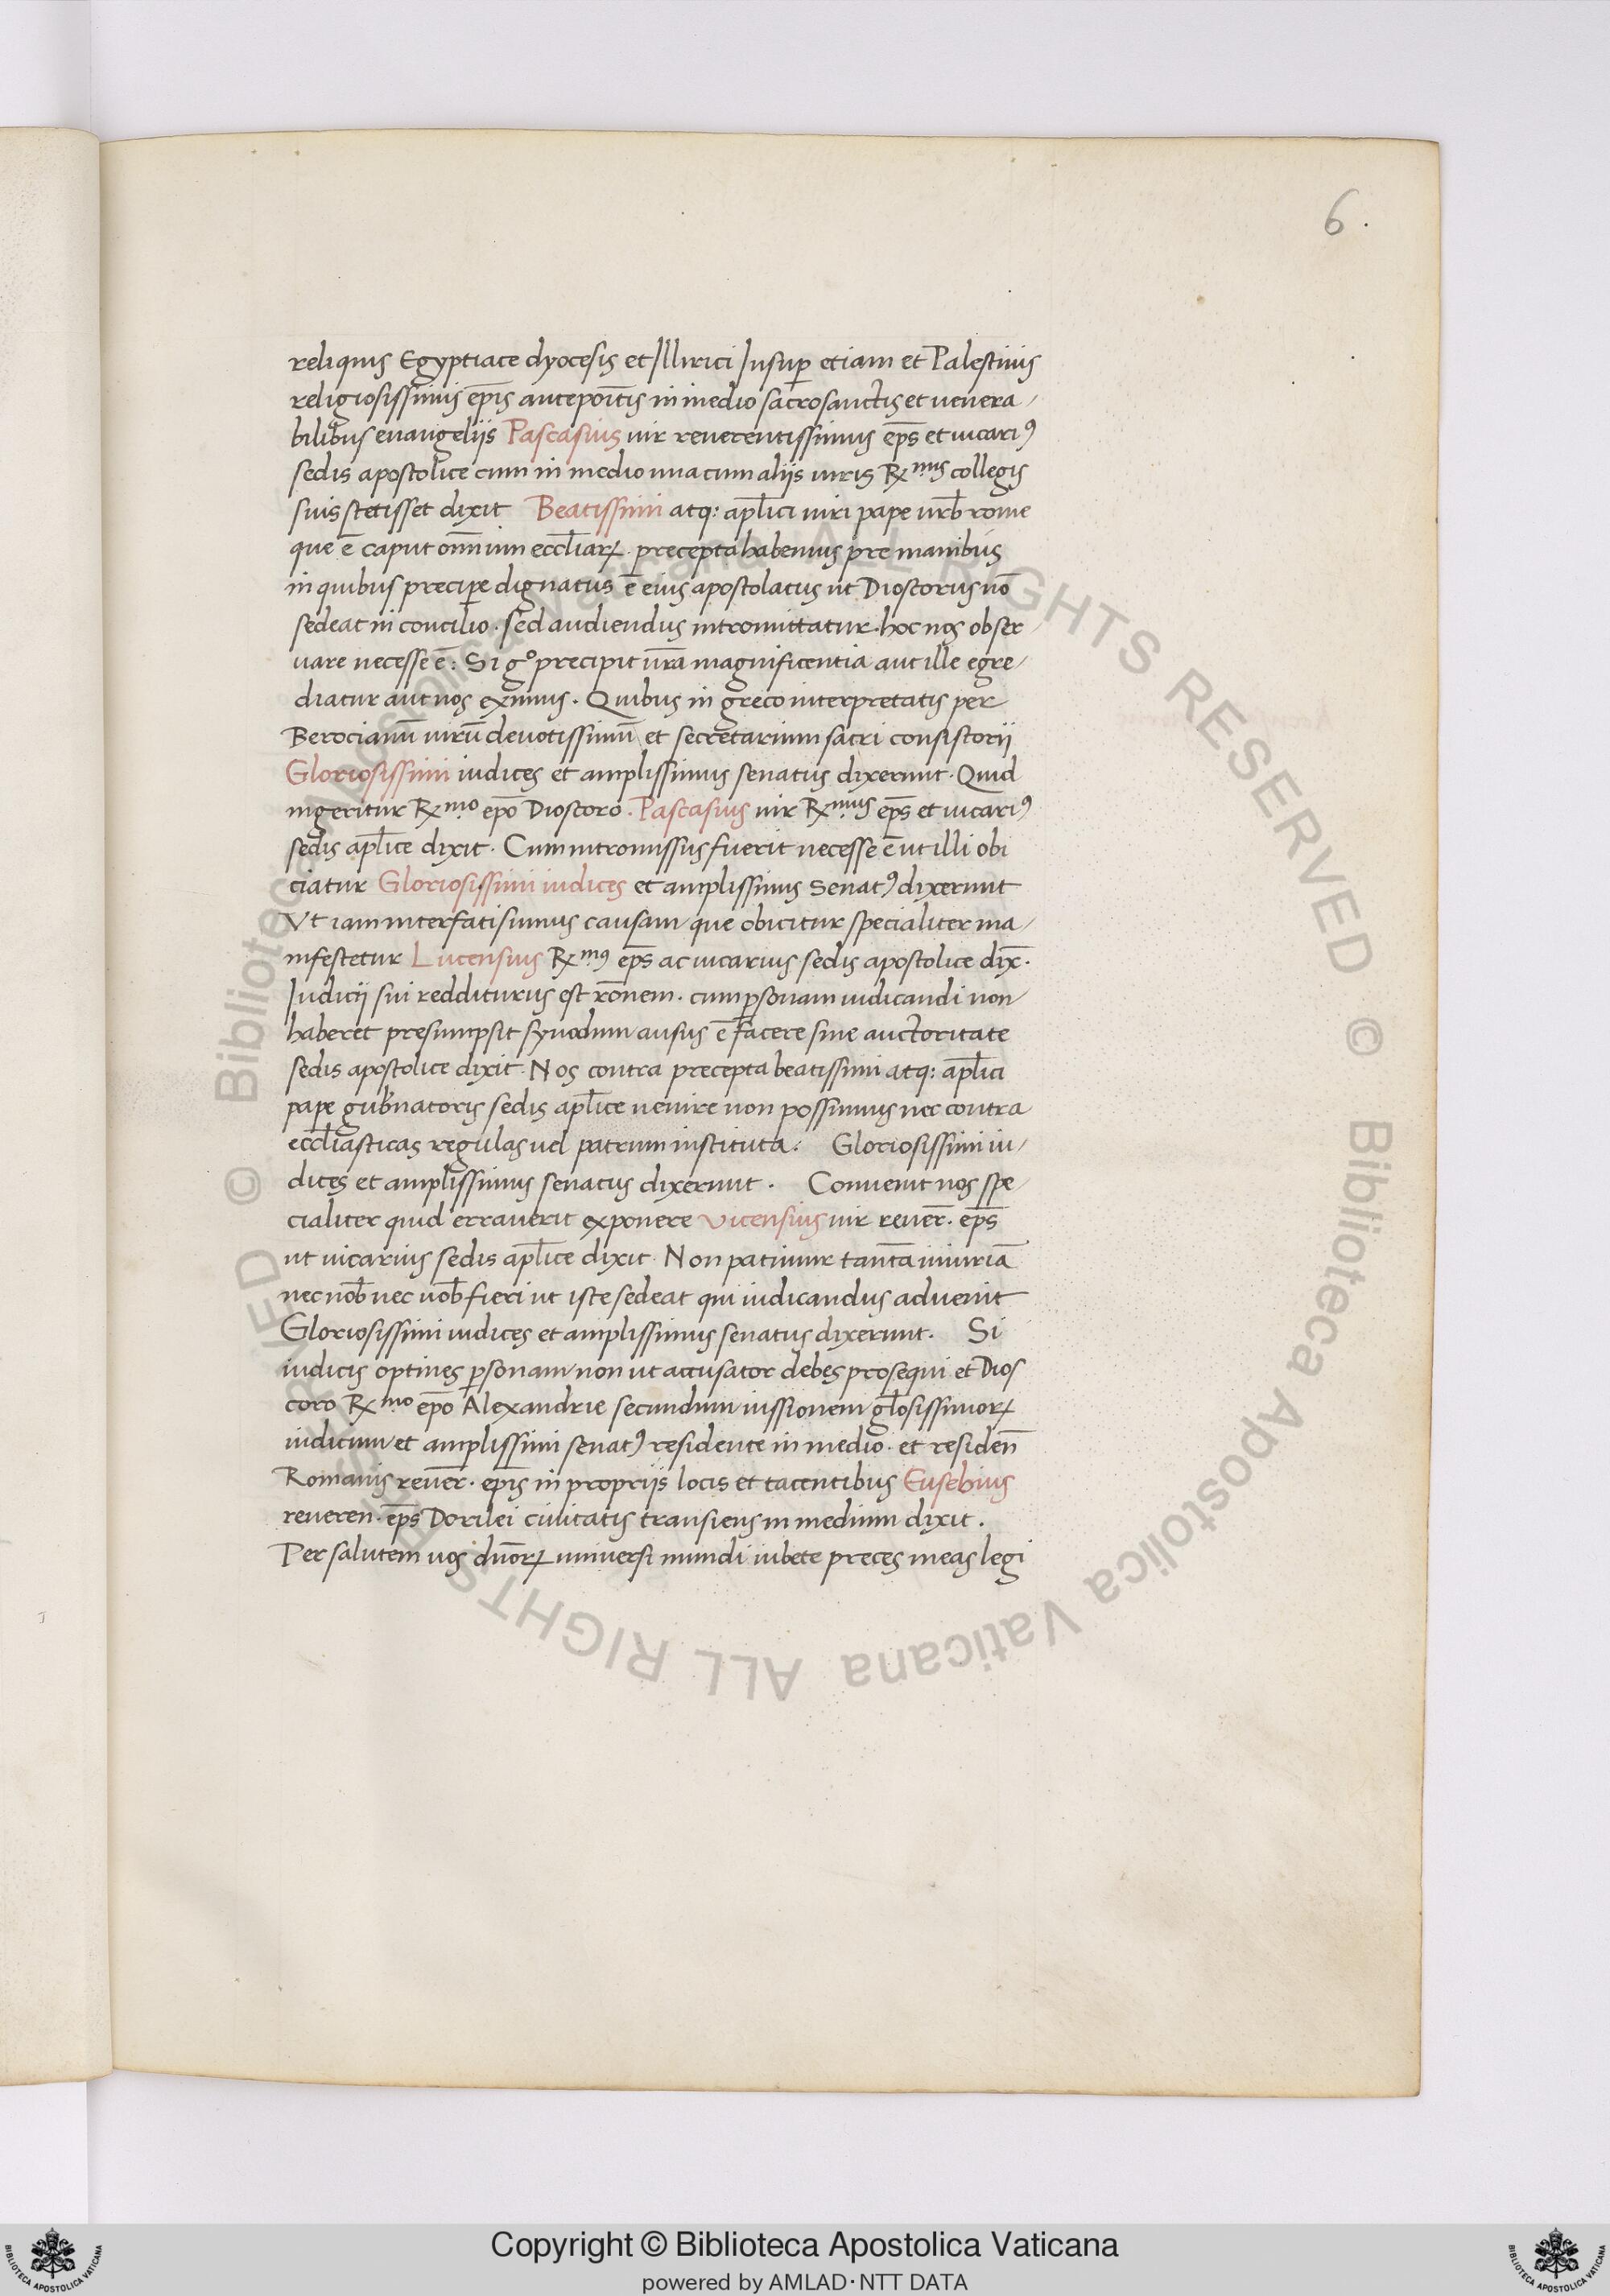 6.
reliquis Egyptiace dyocesis et Illirici Insuꝑ etiam et Palestinis
religiosissimis ep̄is antepoītis in medio sacrosanctis et venera-
bilibus euangeliis Pascasius uir reuerentissimus ep̄s et uicariꝰ
sedis apostolice cum in medio una cum aliis uiris R̄ᵐⁱˢ collegis
suis stetisset dixit Beatissimi atq: apl̄ici uiri pape urb̄ rome
que ē caput om̄nium eccl̄iarꝝ. precepta habemus pre manibus
in quibus preciꝑe dignatus ē eius apostolatus ut Dioscorus nō
sedeat in concilio. sed audiendus intromittatur. hoc nos obser-
uare necesse ē: Si gº precipit ur̄a magnificentia aut ille egre-
diatur aut nos eximus. Quibus in greco interpretatis per
Berocianū uirū deuotissimū et secretarium sacri consistorii
Gloriosissimi iudices et amplissimus senatus dixerunt. Quid
ingeritur R̄ᵐᵒ ep̄o Dioscoro. Pascasius uir R̄ᵐⁱᵘˢ ep̄s et uicariꝰ
sedis apl̄ice dixit. Cum intromissus fuerit necesse ē ut illi obi
ciatur Gloriosissimi iudices et amplissimus Senatꝰ dixerunt
Vt iam interfati sumus causam que obicitur specialiter ma-
nifestetur Lucensius R̄ᵐꝰ ep̄s ac uicarius sedis apostolice dix̄.
Iudicii sui redditurus est rōnem. cum ꝑsonam iudicandi non
haberet presumpsit synodum ausus ē facere sine auctoritate
sedis apostolice dixit. Nos contra precepta beatissimi atq: apl̄ici
pape gub̄natoris sedis apl̄ice uenire non possumus nec contra
eccl̄iasticas regulas uel patrum instituta. Gloriosissimi iu-
dices et amplissimus senatus dixerunt. Conuenit nos spe-
cialiter quid errauerit exponere Vicensius uir reuer̄. ep̄s
ut uicarius sedis apl̄ice dixit. Non patimur tantā iniuriā
nec nob̄ nec uob̄ fieri ut iste sedeat qui iudicandus aduenit
Gloriosissimi iudices et amplissimus senatus dixerunt. Si
iudicis optines ꝑsonam non ut accusator debes prosequi et Dios
coro R̄ᵐᵒ ep̄o Alexandrie secundum iussionem gl̄osissimorꝝ
iudicum et amplissimi senatꝰ residente in medio. et residen̄
Romanis reuer̄. ep̄is in propriis locis et tacentibus Eusebius
reueren. ep̄s Dorilei ciuitatis transiens in medium dixit.
Per salutem uos dn̄orꝝ uniuersi mundi iubete preces meas legi
© Biblioteca Apostolica Vaticana ALL RIGHTS RESERVED
© Biblioteca Apostolica Vaticana ALL RIGHTS RESERVED
Copyright © Biblioteca Apostolica Vaticana
powered by AMLAD·NTT DATA
BIBLIOTECA APOSTOLICA VATICANA
BIBLIOTECA APOSTOLICA VATICANA